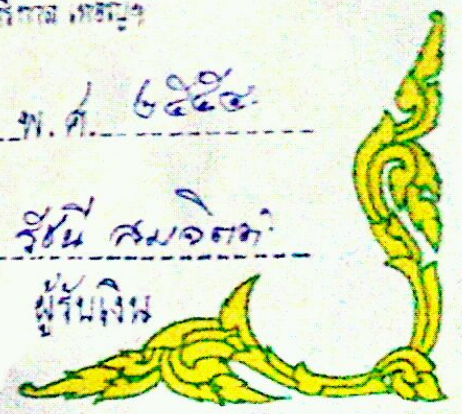 พ.ศ. ๒๕๕๔
รัชนี สมจิตต์
ผู้รับเงิน